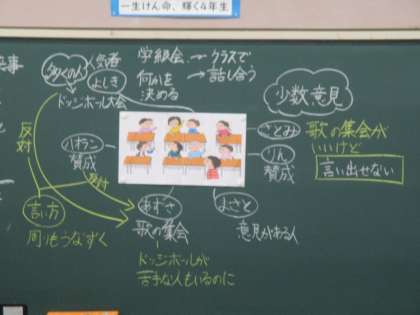 一生けん命、輝く4年生
多くの人
人気者
よしき
ドッジボール大会
学級会
何かを
決める
クラスで
→話し合う
少数意見
さとみ
歌の集会が
いいけど
言い出せない
りん
賛成
賛成
反対
反対
言い方
周もうなずく
あずさ
歌の集会
ドッジボールが
苦手な人もいるのに
よさと
意見がある人